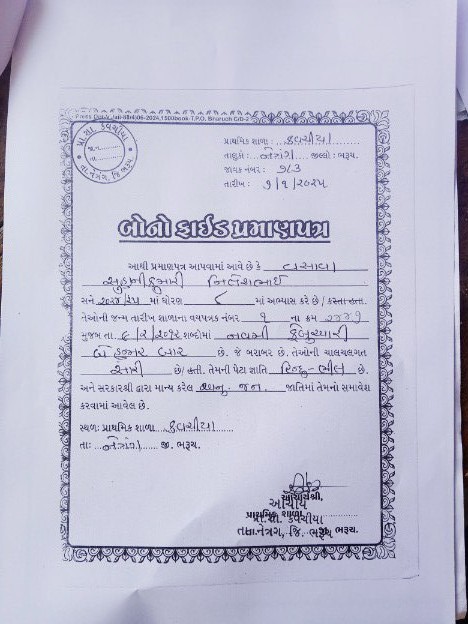 પ્રા. શા. કવચીયા
જા.ન.
તા.
તા. નેત્રંગ, જિ. ભરૂચ
પ્રાથમિક શાળા: કવચીયા
તાલુકો: નેત્રંગ જીલ્લો: ભરૂચ.
જાવક નંબર: ૭૮૩
તારીખ: ૧/૧/૨૦૨૫
બોનોફાઈડ પ્રમાણપત્ર
આથી પ્રમાણપત્ર આપવામાં આવે છે કે વસાવા
નિલેશભાઈ
સને ૨૦૨૪/૨૫ માં ધોરણ ૮ માં અભ્યાસ કરે છે / કરતા હતા.
તેઓની જન્મ તારીખ શાળાના વયપત્રક નંબર ૧ ના ક્રમ
મુજબ તા. ૯/૨/૨૦૧૨ શબ્દોમાં નવમી ફેબ્રુઆરી
બે હજાર બાર છે. જે બરાબર છે. તેઓની ચાલચલગત
સારી છે/હતી. તેમની પેટા જ્ઞાતિ હિન્દુ-ભીલ છે.
અને સરકારશ્રી દ્વારા માન્ય કરેલ અનુ. જન. જાતિમાં તેમનો સમાવેશ
કરવામાં આવેલ છે.
સ્થળ: પ્રાથમિક શાળા કવચીયા
તા: નેત્રંગ જી. ભરૂચ.
આચાર્યશ્રી,
આચાર્ય
પ્રાથમિક શાળા
પ્રા. શા. કવચીયા
તા. નેત્રંગ, જિ. ભરૂચ ભરૂચ.